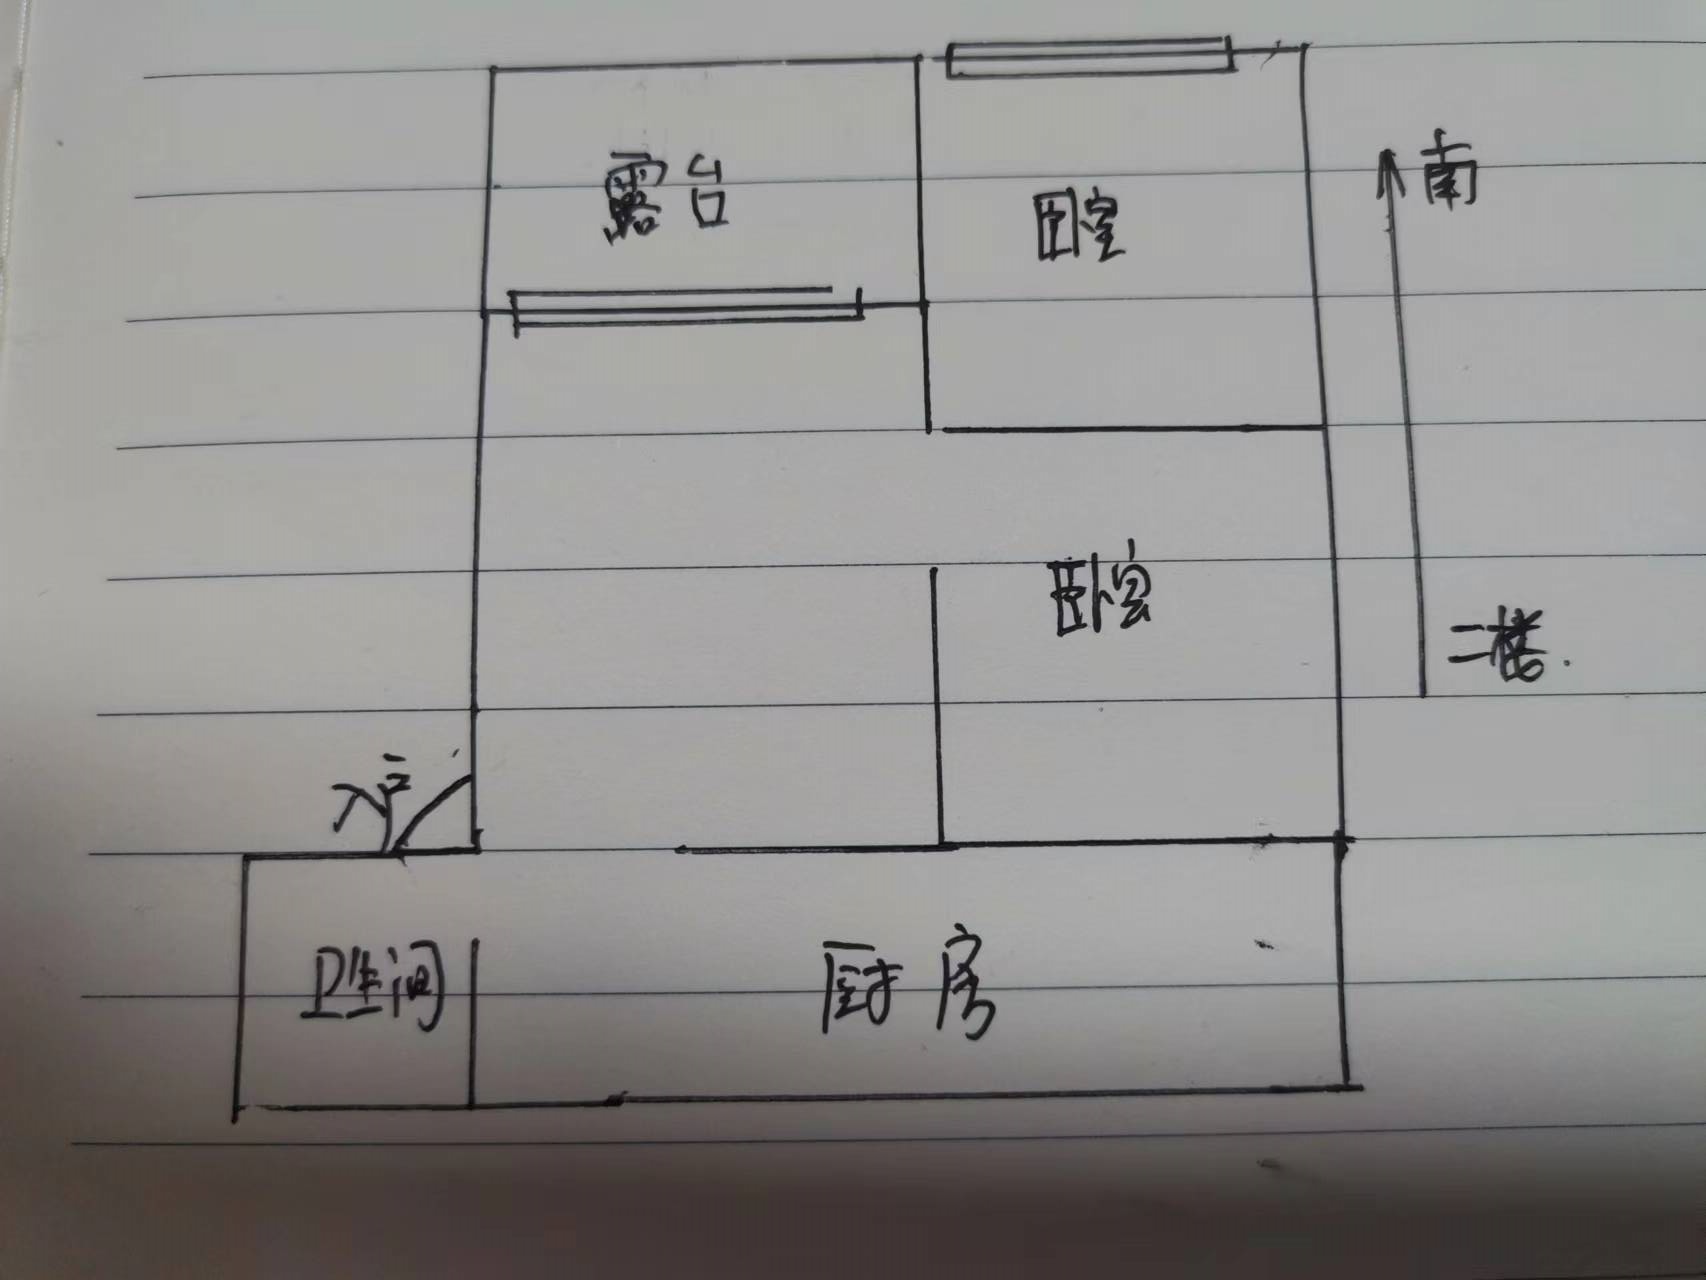 露台
卧室
南
卧室
二楼.
入户
卫生间
厨房